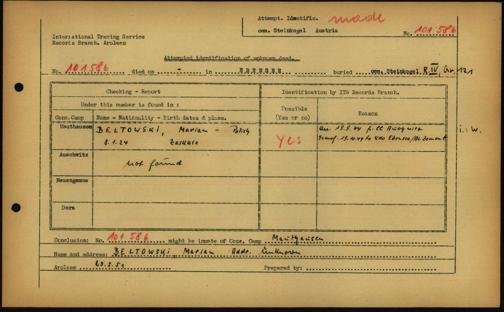 Attempt. Identific. made
cem. Steinkogel Austria
No. 101 586
International Tracing Service
Records Branch, Arolsen
Attempted identification of unknown dead.
No. 101 586 died on - in EBENSEE buried cem. Steinkogel R. IV Gr. 121
Checking - Report
Under this number is found in:
Conc. Camp
Name - Nationality - Birth dates & place.
Identification by ITS Records Branch.
Possible (Yes or no)
Reason
Mauthausen
BELTOWSKI, Marian - Polish
8.1.24
Yes
Auschwitz
not found
Neuengamme
Dora
Conclusion: No. 101 586 might be inmate of Conc. Camp Mauthausen
Name and address: BELTOWSKI Marian
Arolsen
Prepared by: